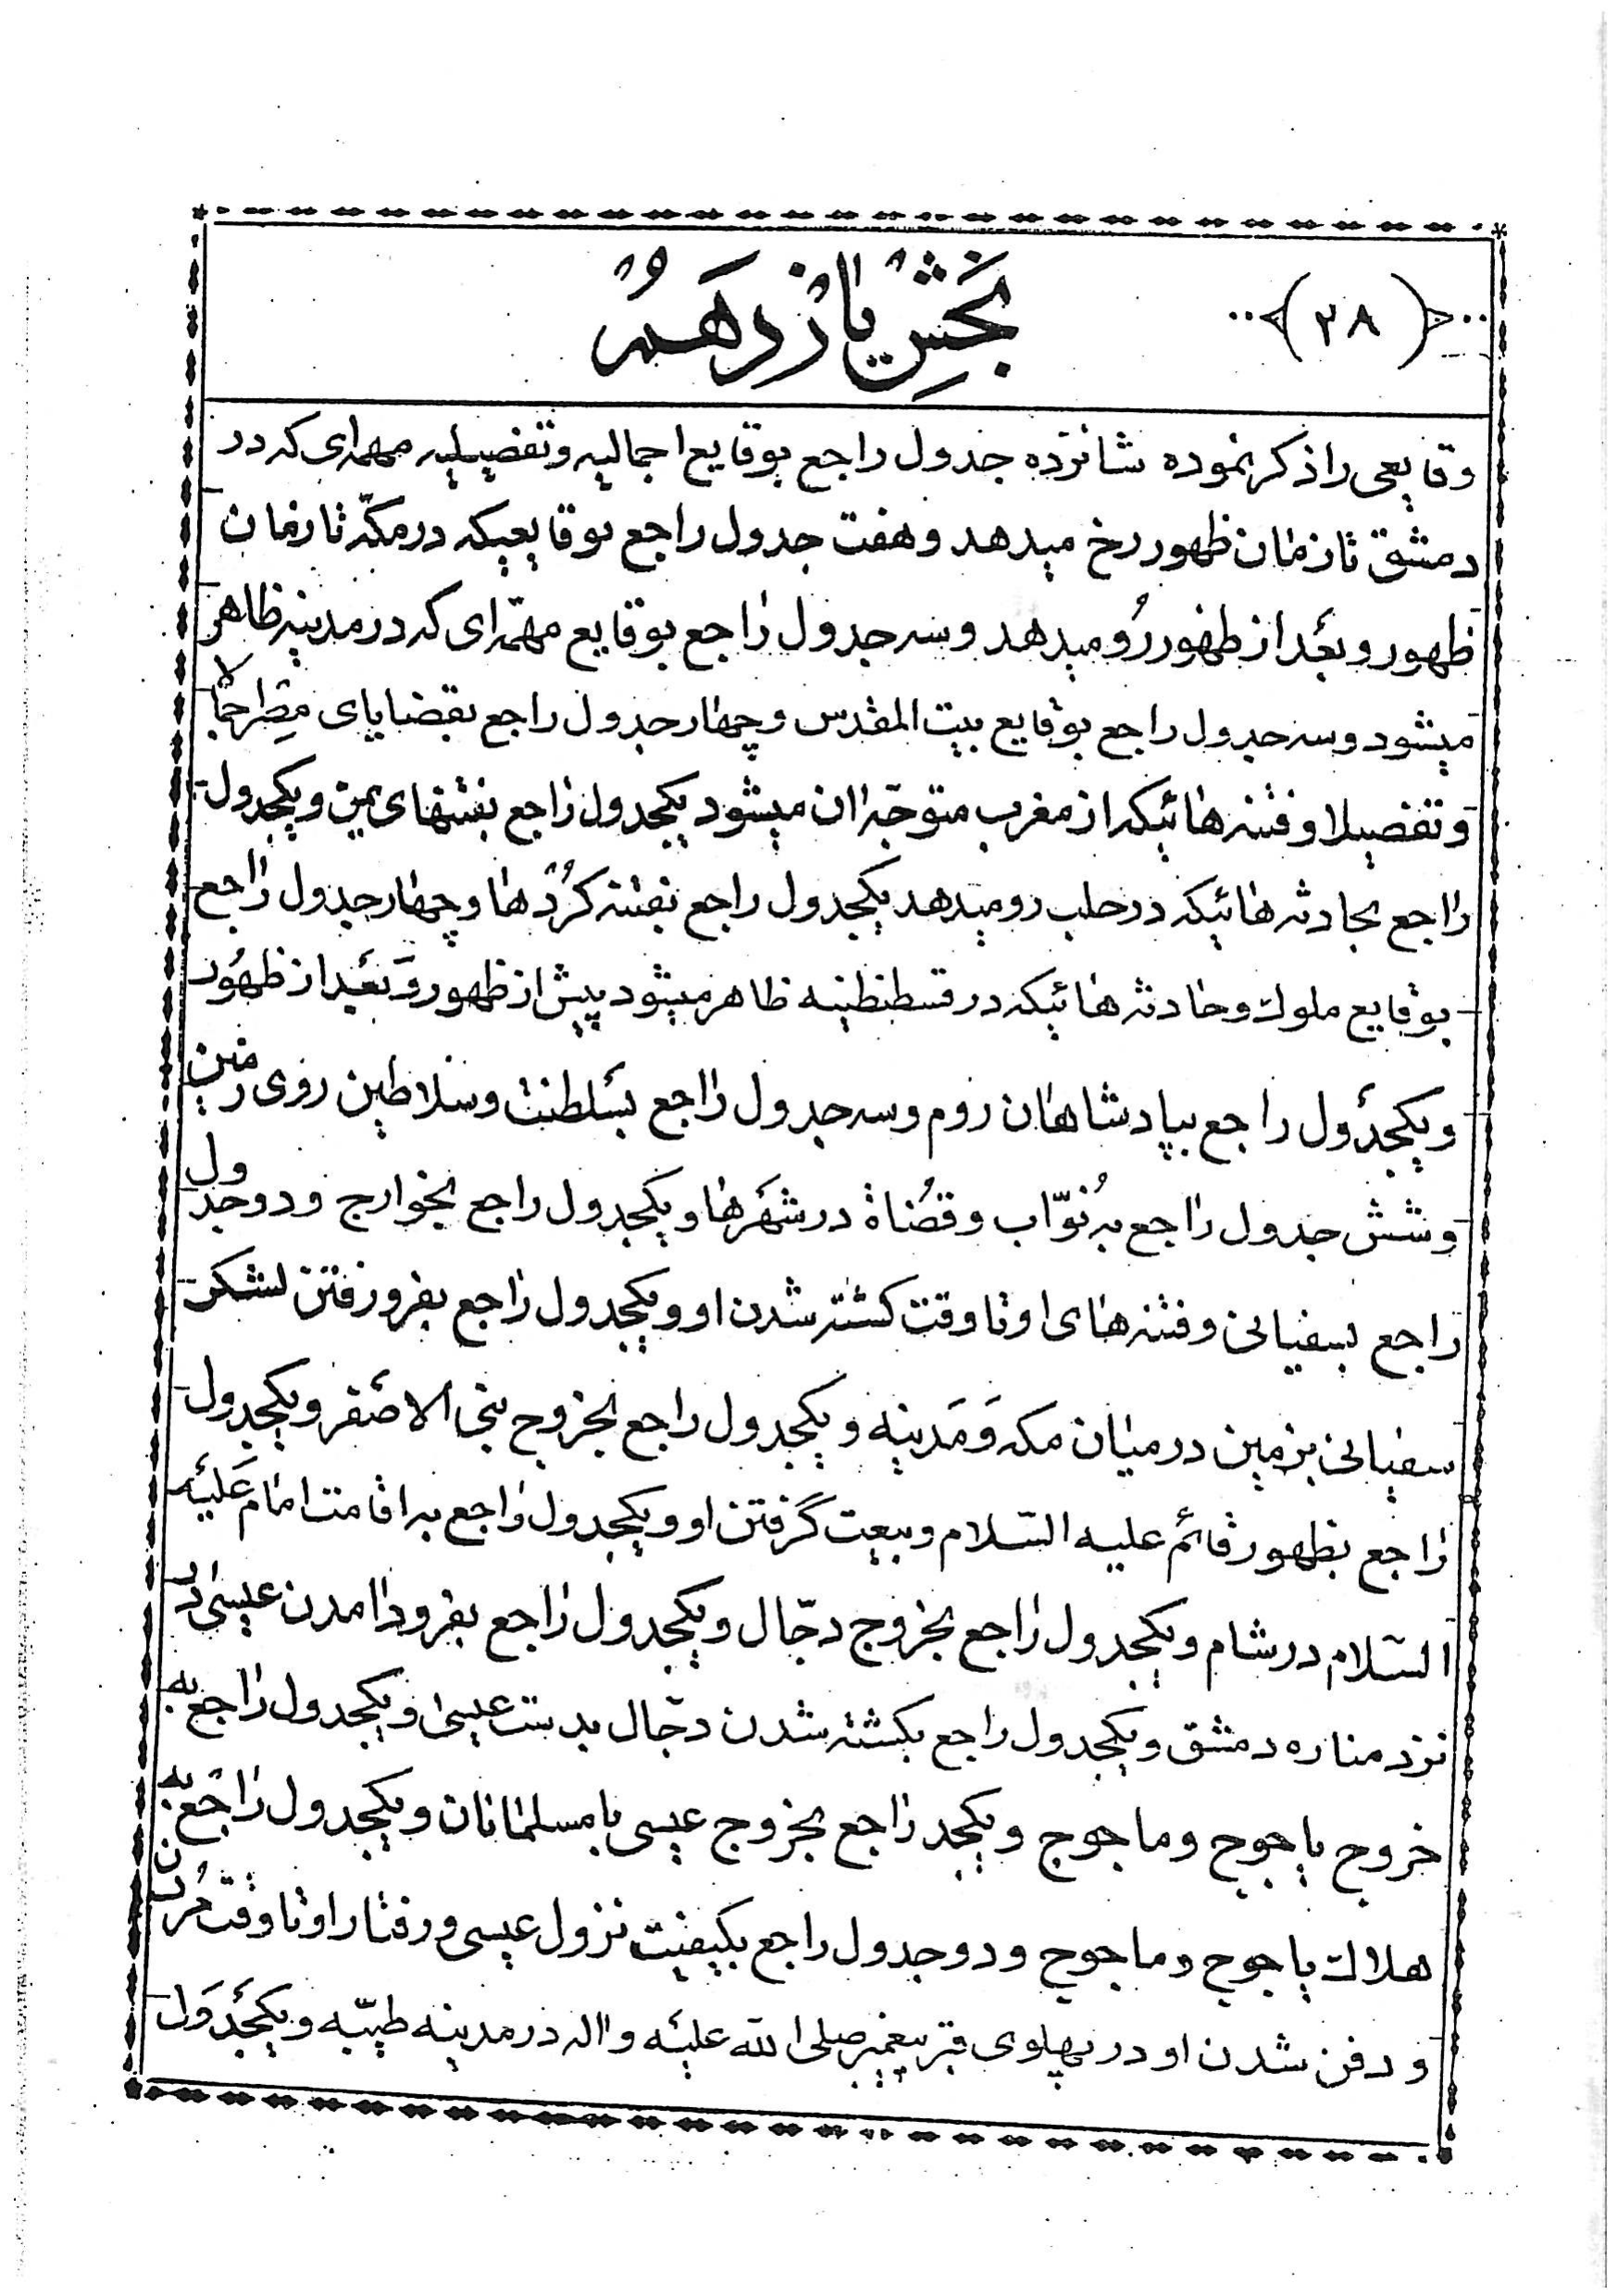 ﴿۲۸﴾
بخش یازدهم
وقایعی را ذکر نموده شانزده جدول راجع بوقایع اجمالیه و تفضیلیه مهمه‌ای که در
دمشق تا زمان ظهور رخ میدهد و هفت جدول راجع بوقایعیکه در مکّه تا زمان
ظهور و بعد از ظهور رُو میدهد و سه جدول راجع بوقایع مهمّه‌ای که در مدینه ظاهر
میشود و سه جدول راجع بوقایع بیت المقدس و چهار جدول راجع بقضایای مصر اجمالا
و تفضیلا و فتنه‌هائیکه از مغرب متوجّه ان میشود یکجدول راجع بفتنهای یمن و یکجدول
راجع بحادثه‌هائیکه در حلب رو میدهد یکجدول راجع بفتنه کُرُدها و چهار جدول راجع
بوقایع ملوک و حادثه‌هائیکه در قسطنطنیه ظاهر میشود پیش از ظهور وَ بعد از ظهُور
و یکجدول راجع بپادشاهان روم و سه جدول راجع بسَلطنت و سلاطین روی زمین
و شش جدول راجع به نُوّاب و قُضاة در شهَرها و یکجدول راجع بخوارج و دو جدول
راجع بسفیانی و فتنه‌های او تا وقت کشته شدن او و یکجدول راجع بفرو رفتن لشکر
سفیانی بزمین در میان مکه وَ مَدینه و یکجدول راجع بخروج بنی الاصَفر و یکجدول
راجع بظهور قائم علیه السّلام و بیعت گرفتن او و یکجدول راجع به اقامت امام عَلیَه
السّلام در شام و یکجدول راجع بخروج دجّال و یکجدول راجع بفرود امدن عیسی در
نزد مناره دمشق و یکجدول راجع بکشته شدن دجّال بدست عیسی و یکجدول راجع به
خروج یاجوج و ماجوج و یکجد راجع بخروج عیسی با مسلمانان و یکجدول راجع به
هلاک یاجوج و ماجوج و دو جدول راجع بکیفیت نزول عیسی و رفتار او تا وقت مُردن
و دفن شدن او در پهلوی قبر پیغمبر صلی الله علیَه واله در مدینه طیّبه و یکجَدوَل